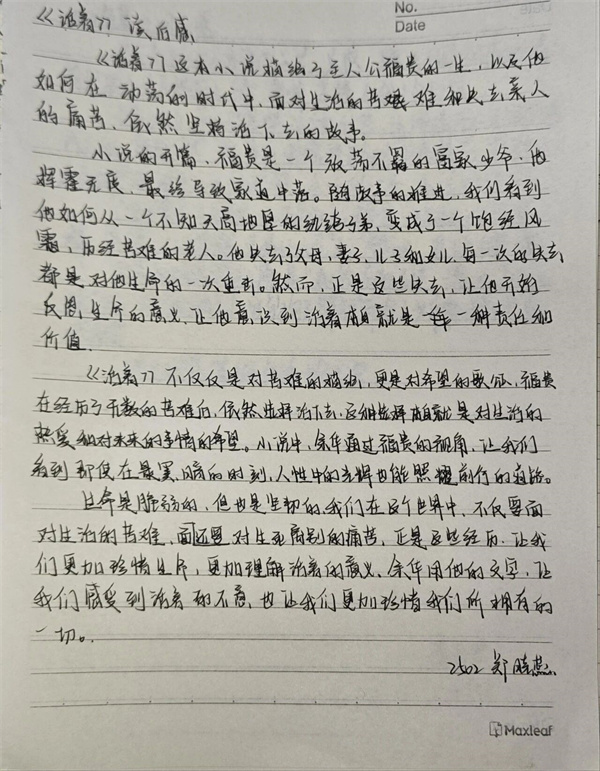 No.
Date
《活着》读后感
《活着》这本小说描绘了主人公福贵的一生，以及他
如何在动荡的时代中，面对生活的苦难和失去亲人
的痛苦，依然坚持活下去的故事。
小说的开篇，福贵是一个放荡不羁的富家少爷，他
挥霍无度，最终导致家道中落。随故事的推进，我们看到
他如何从一个不知天高地厚的纨绔子弟，变成了一个饱经风
霜，历经苦难的老人。他失去了父母，妻子，儿子和女儿，每一次的失去
都是对他生命的一次重击。然而，正是这些失去，让他开始
反思，生命的意义，让他意识到活着本身就是一种责任和
价值
《活着》不仅仅是对苦难的描绘，更是对希望的歌颂，福贵
在经历了无数的苦难后，依然选择活下去，这种选择本身就是对生活的
热爱和对未来的事情的希望。小说中，余华通过福贵的视角，让我们
看到即使在最黑暗的时刻，人性中的光辉也能照耀前行的道路。
生命是脆弱的，但也是坚韧的，我们在这个世界中，不仅要面
对生活的苦难，面还要对生死离别的痛苦，正是这些经历，让我
们更加珍惜生命，更加理解活着的意义，余华用他的文字，让
我们感受到活着的不易，也让我们更加珍惜我们所拥有的
一切。
2502 郑
Maxleaf